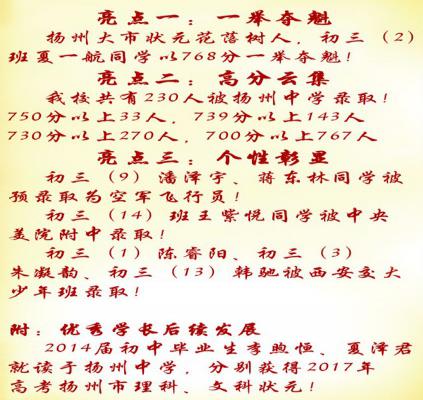 亮点一：一举夺魁
扬州大市状元花落树人，初三（2）
班夏一航同学以768分一举夺魁！
亮点二：高分云集
我校共有230人被扬州中学录取！
750分以上33人，739分以上143人
730分以上270人，700分以上767人
亮点三：个性彰显
初三（9）潘泽宇、蒋东林同学被
预录取为空军飞行员！
初三（14）班王紫悦同学被中央
美院附中录取！
初三（1）陈睿阳、初三（3）
朱凝韵、初三（13）韩驰被西安交大
少年班录取！
附：优秀学长后续发展
2014届初中毕业生李煦恒、夏泽君
就读于扬州中学，分别获得2017年
高考扬州市理科、文科状元！